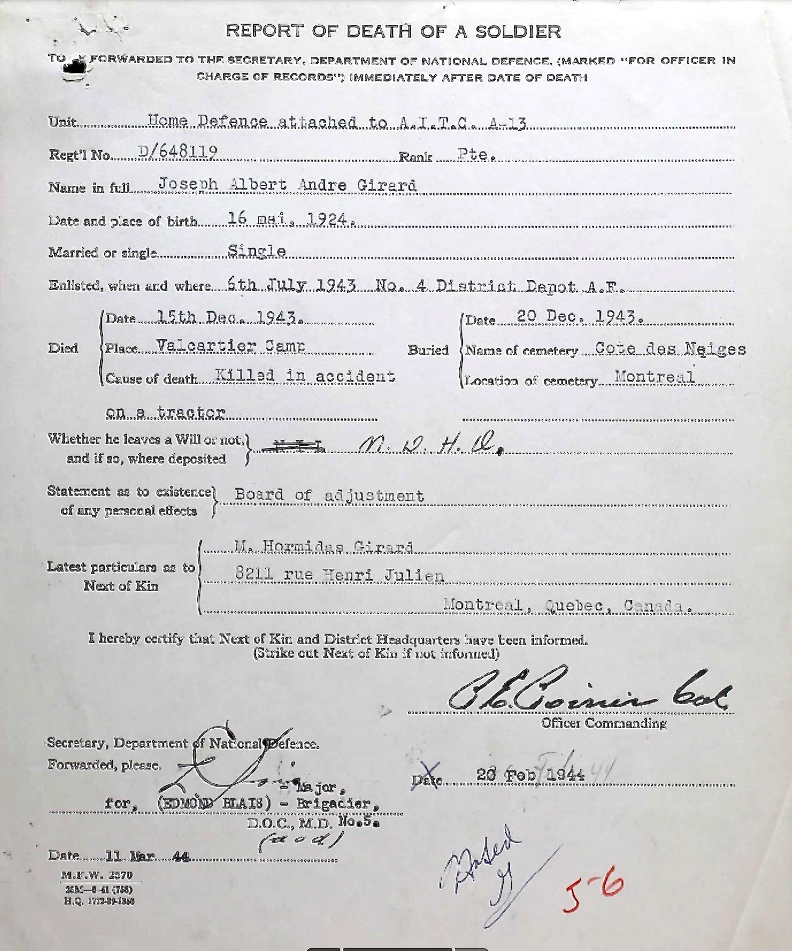 REPORT OF DEATH OF A SOLDIER
TO FORWARDED TO THE SECRETARY, DEPARTMENT OF NATIONAL DEFENCE, (MARKED "FOR OFFICER IN
CHARGE OF RECORDS"; IMMEDIATELY AFTER DATE OF DEATH
Unit Home Defence attached to A.I.T.C. A-13
Regt'l No. D/648119 Rank Pte.
Name in full Joseph Albert Andre Girard
Date and place of birth 16 mai, 1924.
Married or single Single
Enlisted, when and where 6th July 1943 No. 4 District Depot A.F.
Died
Date 15th Dec. 1943.
Place Valcartier Camp
Cause of death Killed in accident
on a tractor
Buried
Date 20 Dec. 1943.
Name of cemetery Cote des Neiges
Location of cemetery Montreal
Whether he leaves a Will or not, and if so, where deposited N.D.H.Q.
Statement as to existence of any personal effects Board of adjustment
Latest particulars as to Next of Kin
M. Hormidas Girard
8211 rue Henri Julien
Montreal, Quebec, Canada.
I hereby certify that Next of Kin and District Headquarters have been informed.
(Strike out Next of Kin if not informed)
Officer Commanding
Secretary, Department of National Defence.
Forwarded, please.
Date 20 Feb 1944
- Major,
for, (EDMOND BLAIS) - Brigadier,
D.O.C., M.D. No.5.
Date 11 Mar 44
Noted
56
M.F.W. 2570
H.Q. 1772-39-1350